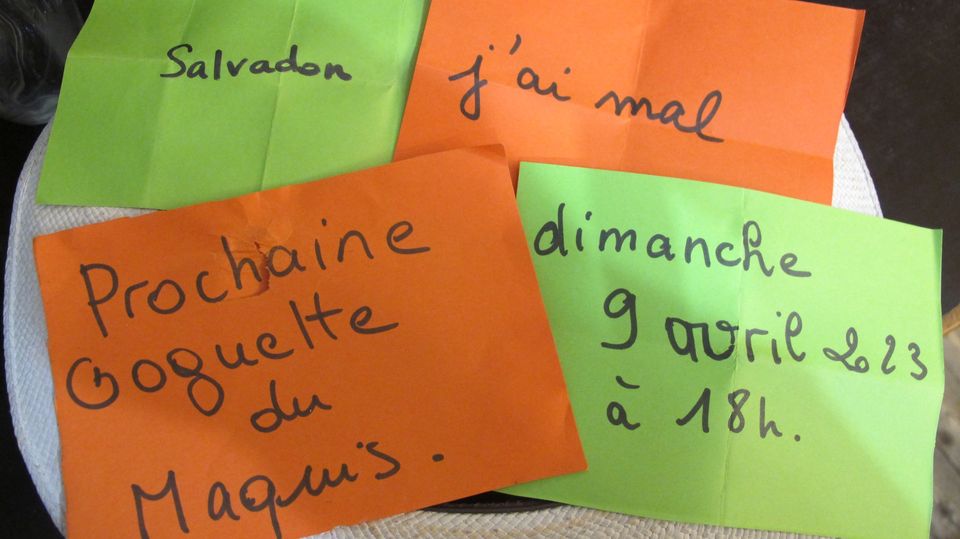 Salvadon
j'ai mal
Prochaine
Goguette
du
Maquis.
dimanche
9 avril 2023
à 18h.